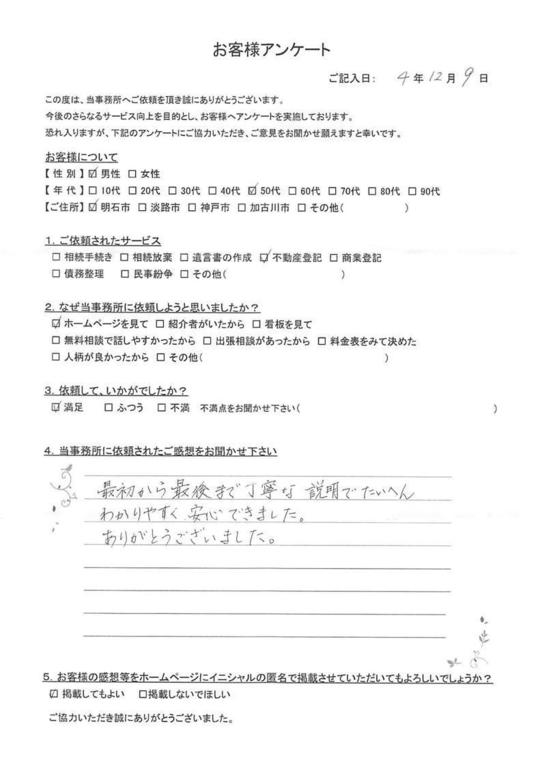 お客様アンケート
ご記入日: 4 年 12 月 9 日
この度は、当事務所へご依頼を頂き誠にありがとうございます。
今後のさらなるサービス向上を目的とし、お客様へアンケートを実施しております。
恐れ入りますが、下記のアンケートにご協力いただき、ご意見をお聞かせ願えますと幸いです。
お客様について
【 性 別 】☑ 男性 □ 女性
【 年 代 】□ 10代 □ 20代 □ 30代 □ 40代 ☑ 50代 □ 60代 □ 70代 □ 80代 □ 90代
【ご住所】☑ 明石市 □ 淡路市 □ 神戸市 □ 加古川市 □ その他( )
1. ご依頼されたサービス
□ 相続手続き □ 相続放棄 □ 遺言書の作成 ☑ 不動産登記 □ 商業登記
□ 債務整理 □ 民事紛争 □ その他( )
2. なぜ当事務所に依頼しようと思いましたか?
☑ ホームページを見て □ 紹介者がいたから □ 看板を見て
□ 無料相談で話しやすかったから □ 出張相談があったから □ 料金表をみて決めた
□ 人柄が良かったから □ その他( )
3. 依頼して、いかがでしたか?
☑ 満足 □ ふつう □ 不満 不満点をお聞かせ下さい( )
4. 当事務所に依頼されたご感想をお聞かせ下さい
最初から最後まで丁寧な説明でたいへん
わかりやすく、安心できました。
ありがとうございました。
5. お客様の感想等をホームページにイニシャルの匿名で掲載させていただいてもよろしいでしょうか?
☑ 掲載してもよい □掲載しないでほしい
ご協力いただき誠にありがとうございました。